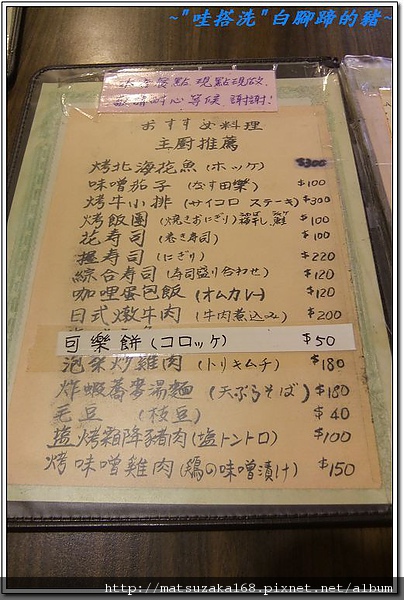 ~"哇搭洗"白腳蹄的豬~
本店餐點現點現做
敬請耐心等候 謝謝!
おすすめ料理
主廚推薦
烤北海花魚(ホッケ) $300
味噌茄子(なす田樂) $100
烤牛小排(サイコロステーキ) $300
烤飯團(焼きおにぎり) 鮭 $100
花壽司(巻き寿司) $100
握壽司(にぎり) $220
綜合壽司(寿司盛り合わせ) $120
咖哩蛋包飯(オムカレー) $120
日式燉牛肉(牛肉煮込み) $200
可樂餅(コロッケ) $50
泡菜炒雞肉(トリキムチ) $180
炸蝦蕎麥湯麵(天ぷらそば) $180
毛豆(枝豆) $40
塩烤霜降豬肉(塩トントロ) $100
烤味噌雞肉(鶏の味噌漬け) $150
http://matsuzaka168.pixnet.net/album